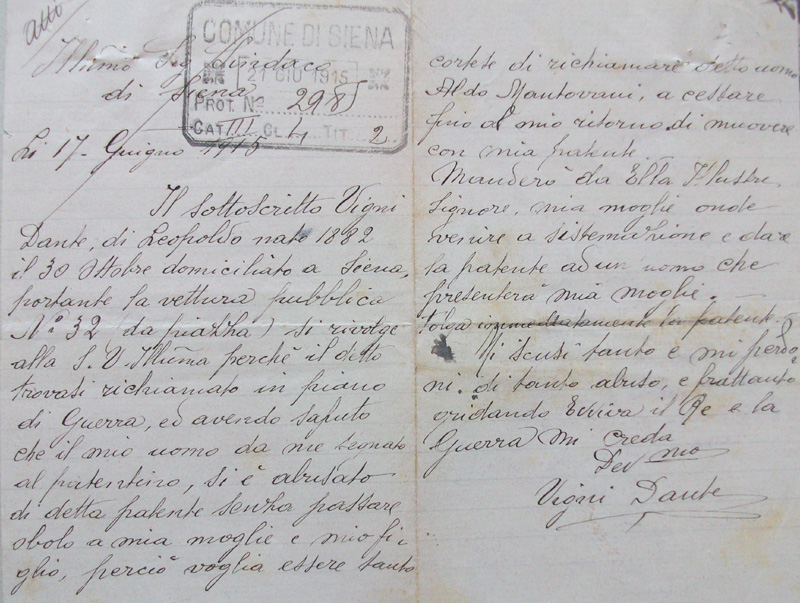 atti
COMUNE DI SIENA
21 GIU 1915
PROT. No 298
CAT. III CL. 4 TIT. 2
Illumo Sig Sindaco
di Siena
Li 17 - Giugno 1915
Il sottoscritto Vigni
Dante, di Leopoldo nato 1882
il 30 Ottobre domiciliato a Siena,
portante la vettura pubblica
No 32 (da piazza) si rivolge
alla S. V. Illuma perchè il detto
trovasi richiamato in piano
di Guerra, ed avendo saputo
che il mio uomo da me segnato
al patentino, si è abusato
di detta patente senza passare
obolo a mia moglie e mio fi-
glio, perciò voglia essere tanto
cortese di richiamare detto uomo
Aldo Mantovani, a cessare
fino al mio ritorno di muovere
con mia patente
Manderò da Ella Illustre
Signore, mia moglie onde
venire a sistemazione e dare
la patente ad un uomo che
presenterà mia moglie. -
tolga immediatamente la patente. -
Mi scusi tanto e mi perdo
ni di tanto abuso, e frattanto
gridando Evviva il Re e la
Guerra mi creda
Dev mo
Vigni Dante